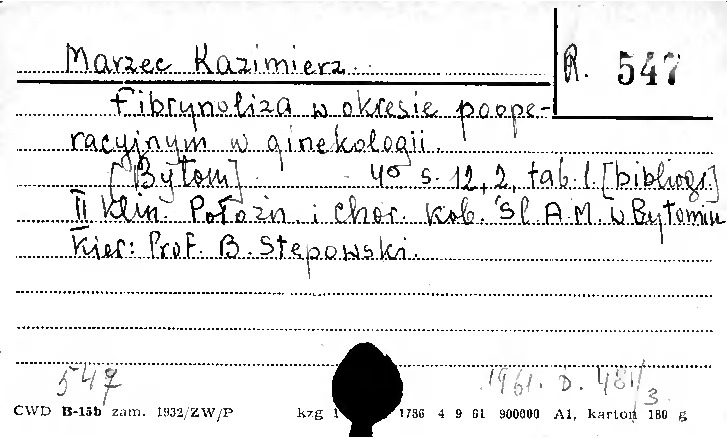 Marzec Kazimierz
R. 547
Fibrynoliza w okresie poope-
racyjnym w ginekologii.
[Bytom] 4° s. 12, 2, tab. 1. [bibliogr.]
II Klin. Położn. i chor. kob. Śl. A.M. w Bytomiu
Kier: Prof. B. Stępowski.
547
1961. D. 481/3
CWD B-15b zam. 1932/ZW/P kzg 1786 4 9 61 900000 A1, karton 180 g